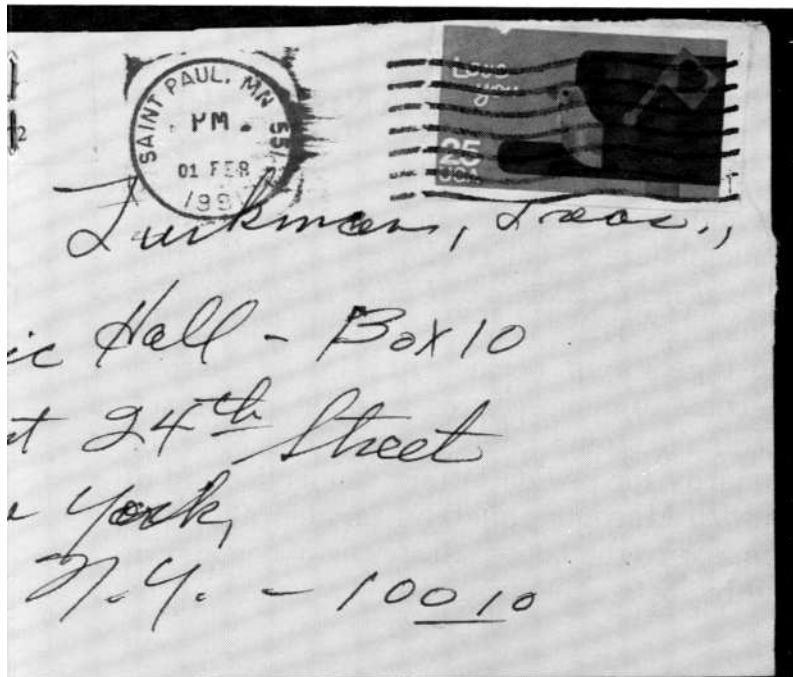 SAINT PAUL, MN 551
PM
01 FEB
199
Love
you
25
USA
2
Turkmen, Treas.,
ic Hall - Box 10
t 24th Street
York,
N.Y. - 10010